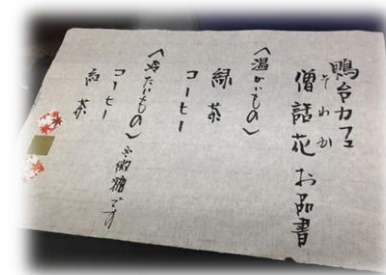 鴨台カフェ
そわか
僧話花 お品書
〈温かいもの〉
緑茶
コーヒー
〈冷たいもの〉※微糖です
コーヒー